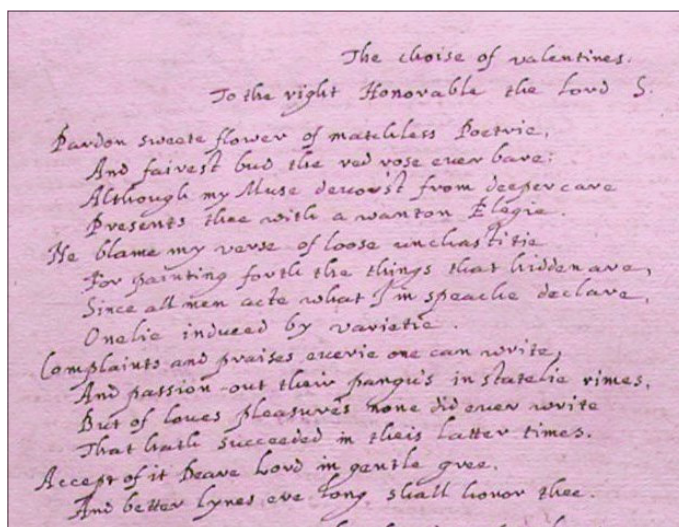 The choise of valentines.
To the right Honorable the Lord S.
Pardon sweete flower of matchless Poetrie,
And fairest bud the red rose euer bare;
Although my Muse devor'st from deeper care
Presents thee with a wanton Elegie.
Ne blame my verse of loose unchastitie
For painting forth the things that hidden are,
Since all men acte what I in speache declare,
Onelie induced by varietie.
Complaints and praises euerie one can write,
And passion-out their pangu's in statelie rimes,
But of loues pleasures none did euer write
That hath succeeded in theis latter times.
Accept of it Deare Lord in gentle gree,
And better lynes ere long shall honor thee.